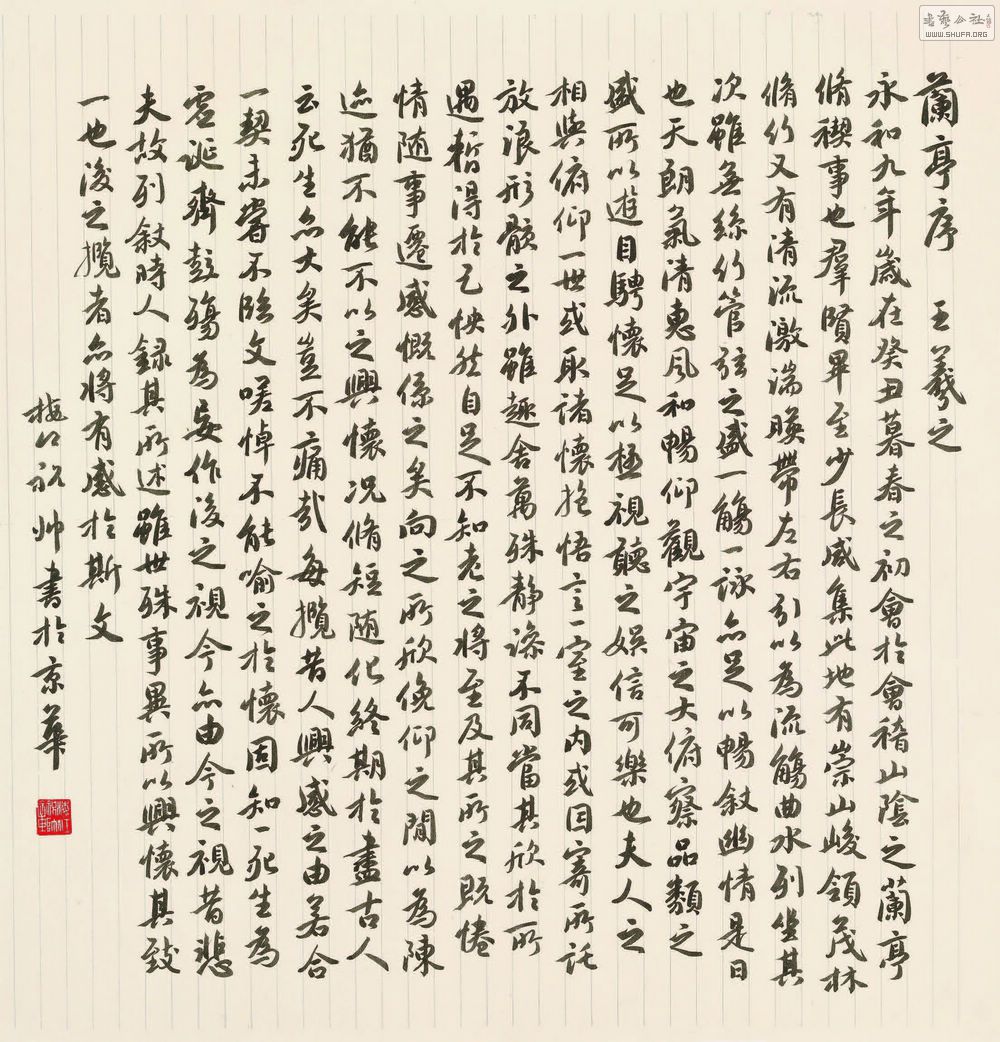 蘭亭序 王羲之
永和九年歲在癸丑暮春之初會於會稽山陰之蘭亭
脩禊事也羣賢畢至少長咸集此地有崇山峻領茂林
脩竹又有清流激湍暎帶左右引以為流觴曲水列坐其
次雖無絲竹管弦之盛一觴一詠亦足以暢敘幽情是日
也天朗氣清惠風和暢仰觀宇宙之大俯察品類之
盛所以遊目騁懷足以極視聽之娛信可樂也夫人之
相與俯仰一世或取諸懷抱悟言一室之內或因寄所託
放浪形骸之外雖趣舍萬殊靜躁不同當其欣於所
遇暫得於己怏然自足不知老之將至及其所之既惓
情隨事遷感慨係之矣向之所欣俛仰之間以為陳
迹猶不能不以之興懷況脩短隨化終期於盡古人
云死生亦大矣豈不痛哉每攬昔人興感之由若合
一契未嘗不臨文嗟悼不能喻之於懷固知一死生為
虛誕齊彭殤為妄作後之視今亦由今之視昔悲
夫故列敘時人錄其所述雖世殊事異所以興懷其致
一也後之攬者亦將有感於斯文
祝帅書於京華
書藝公社
WWW.SHUFA.ORG